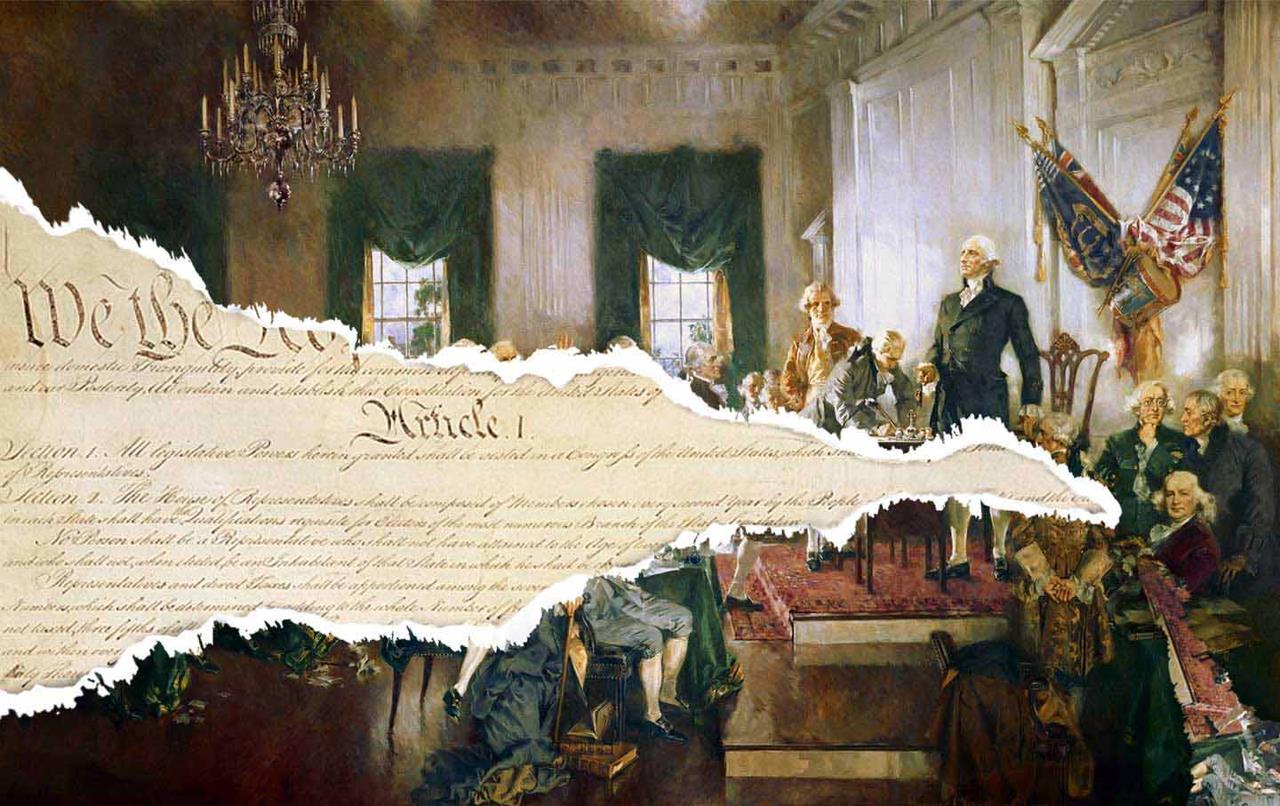 We the
insure domestic Tranquility, provide for the common
and our Posterity, do ordain and establish this Constitution for the United States of
Article. I.
Section. 1. All legislative Powers herein granted shall be vested in a Congress of the United States, which
of Representatives.
Section. 2. The House of Representatives shall be composed of Members chosen every second Year by the People and the
in each State shall have the Qualifications requisite for Electors of the most numerous Branch of the
No Person shall be a Representative who shall not have attained to the Age of
and who shall not, when elected, be an Inhabitant of that State in which he shall
Representatives and direct Taxes shall be apportioned among the
Numbers, which shall be determined by adding to the whole Number of
not taxed, three fifths of
and within every